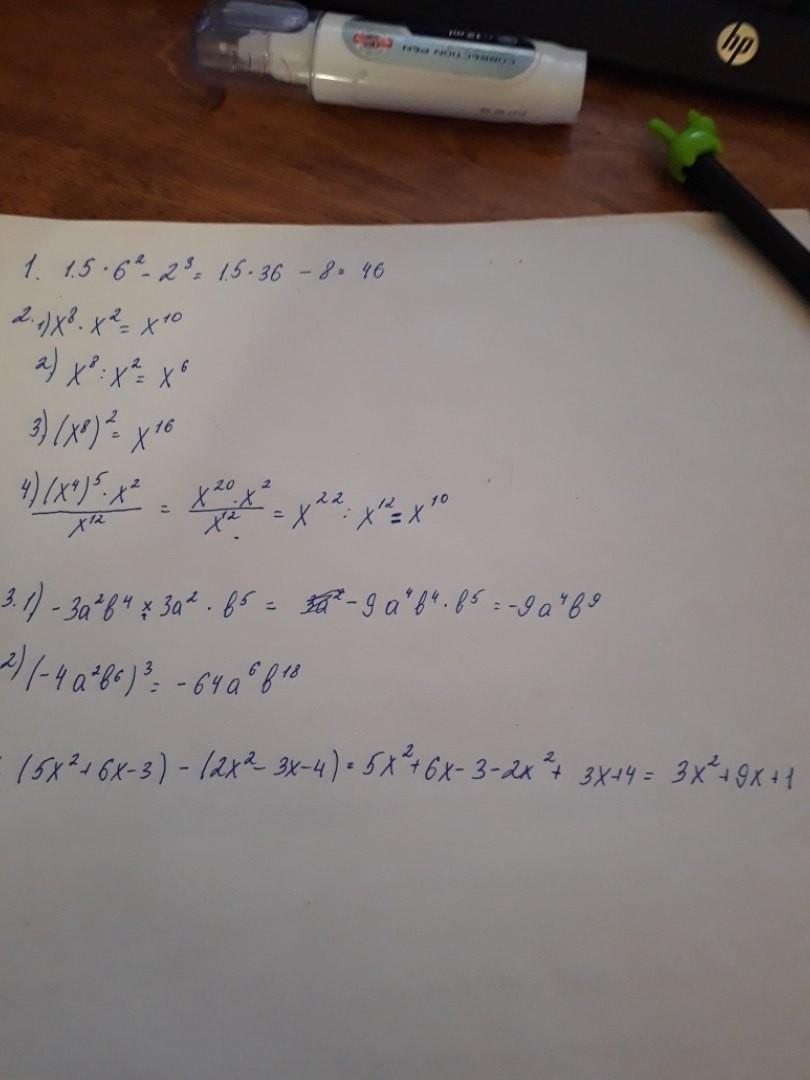 hp
CORRECTION PEN
12 ml
1. 1.5 · 6² - 2³ = 1.5 · 36 - 8 = 46
2. 1) x⁸ · x² = x¹⁰
2) x⁸ : x² = x⁶
3) (x⁸)² = x¹⁶
4) (x⁴)⁵ · x² / x¹² = x²⁰ · x² / x¹² = x²² : x¹² = x¹⁰
3. 1) -3a²b⁴ × 3a² · b⁵ = -9a⁴b⁴ · b⁵ = -9a⁴b⁹
2) (-4a²b⁶)³ = -64a⁶b¹⁸
(5x² + 6x - 3) - (2x² - 3x - 4) = 5x² + 6x - 3 - 2x² + 3x + 4 = 3x² + 9x + 1